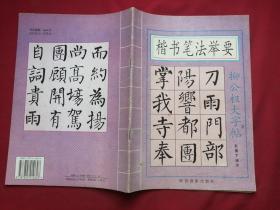 楷书笔法举要
柳公权大字帖
刀雨門部
陽響都團
掌我寺奉
而約為揚
尚高場駕
團顧開有
自詞貴雨